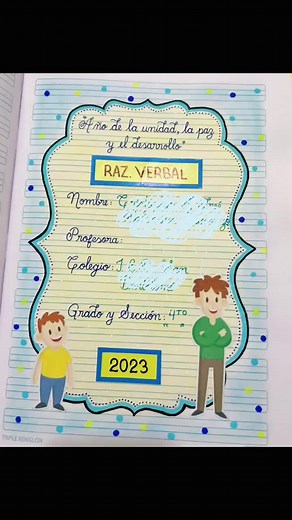 "Año de la unidad, la paz
y el desarrollo"
RAZ. VERBAL
Nombre:
Profesora:
Colegio:
Grado y Sección: 4TO
" "
2023
TRIPLE RENGLÓN